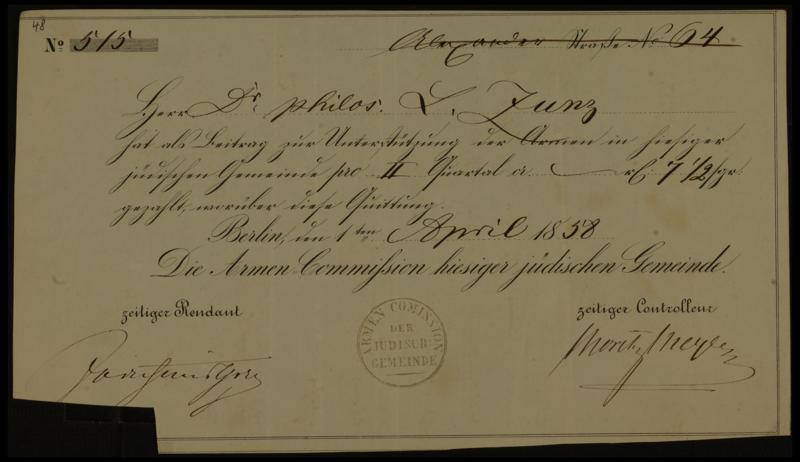 48
No 515
Alexander Straße No 64
Herr Dr. philos. L. Zunz
hat als Beitrag zur Unterstützung der Armen in hiesiger
jüdischen Gemeinde pro II Quartal cr. — rt. 7 1/2 sgr.
gezahlt, worüber diese Quittung.
Berlin, den 1ten April 1858
Die Armen-Commission hiesiger jüdischen Gemeinde.
zeitiger Rendant
zeitiger Controlleur
ARMEN COMISSION
DER
JÜDISCH:
GEMEINDE
Moritz Meyer